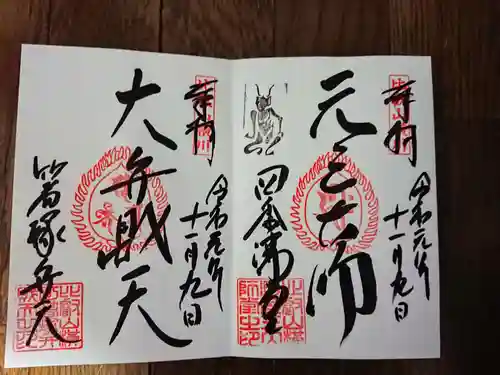 奉拝
比叡山
令和元年
十一月九日
元三大師
四季講堂
奉拝
令和元年
十一月九日
大弁財天
箸塚弁天